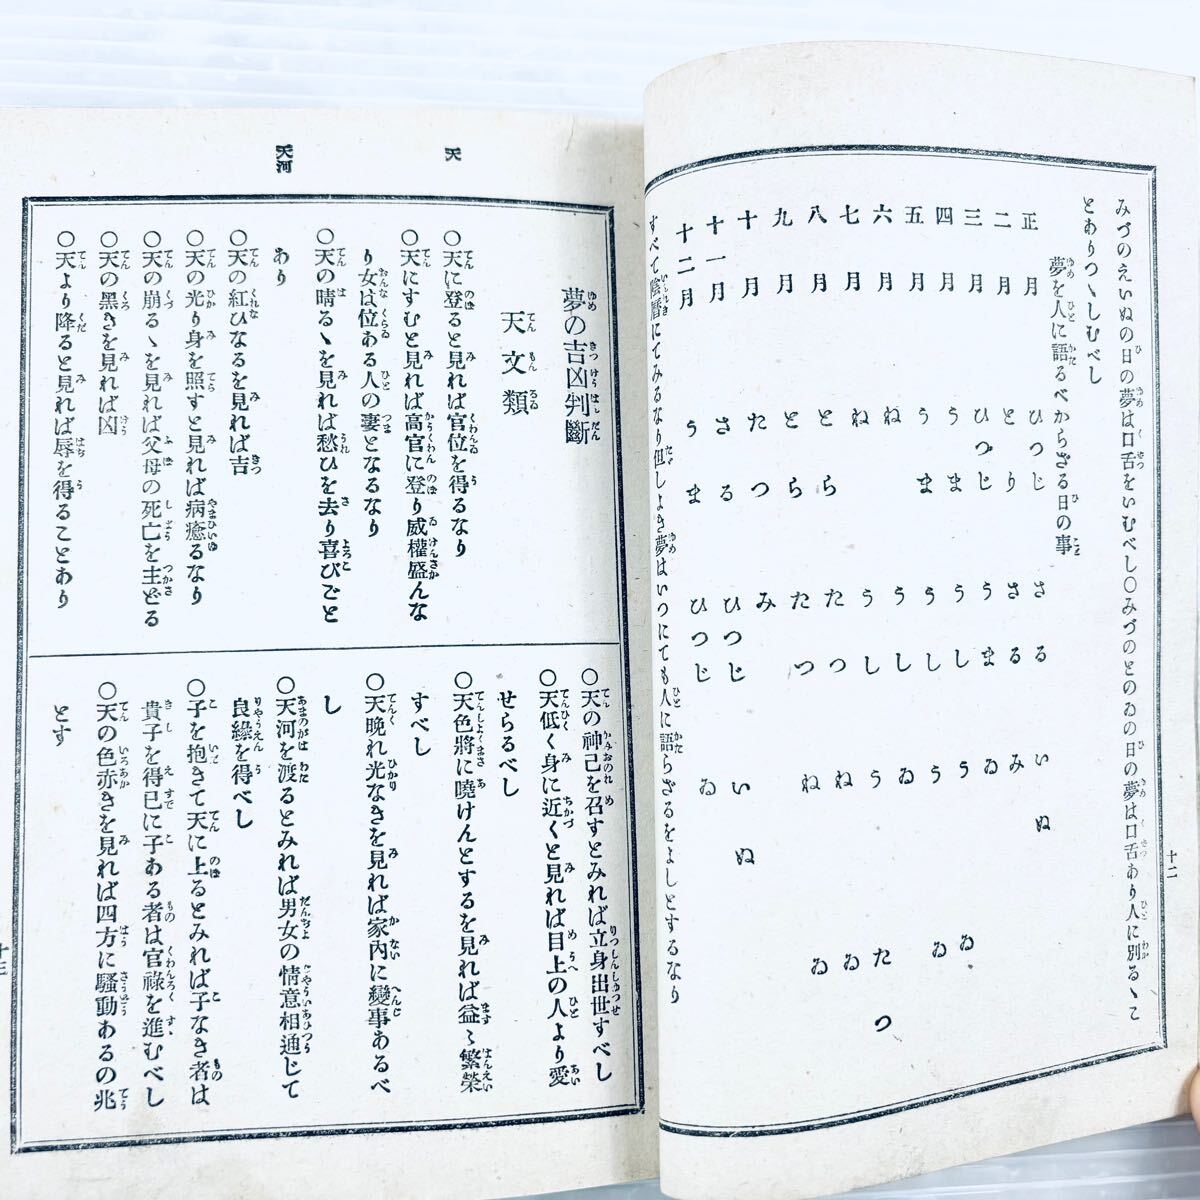 みづのえいぬの日の夢は口舌をいむべし〇みづのとのゐの日の夢は口舌あり人に別るゝこ
とありつゝしむべし
夢を人に語るべからざる日の事
正月 ひつじ さる いぬ
二月 とり さる み
三月 ひつじ うま ゐ ゐ
四月 うま うし う ゐ
五月 うま うし う
六月 ね うし ゐ たつ
七月 ね うし う ゐ
八月 とら たつ ね ゐ
九月 とら たつ ね
十月 たつ み
十一月 さる ひつじ いぬ
十二月 うま ひつじ ゐ
すべて陰暦にてみるなり但しよき夢はいつにても人に語らざるをよしとするなり
十二
天
天河
夢の吉凶判斷
天文類
〇天に登ると見れば官位を得るなり
〇天にすむと見れば高官に登り威權盛んな
り女は位ある人の妻となるなり
〇天の晴るゝを見れば愁ひを去り喜びごと
あり
〇天の紅ひなるを見れば吉
〇天の光り身を照すと見れば病癒るなり
〇天の崩るゝを見れば父母の死亡を主どる
〇天の黑きを見れば凶
〇天より降ると見れば辱を得ることあり
〇天の神己を召すとみれば立身出世すべし
〇天低く身に近くと見れば目上の人より愛
せらるべし
〇天色將に曉けんとするを見れば益〻繁榮
すべし
〇天晩れ光なきを見れば家內に變事あるべ
し
〇天河を渡るとみれば男女の情意相通じて
良緣を得べし
〇子を抱きて天に上るとみれば子なき者は
貴子を得已に子ある者は官祿を進むべし
〇天の色赤きを見れば四方に騷動あるの兆
とす
十三